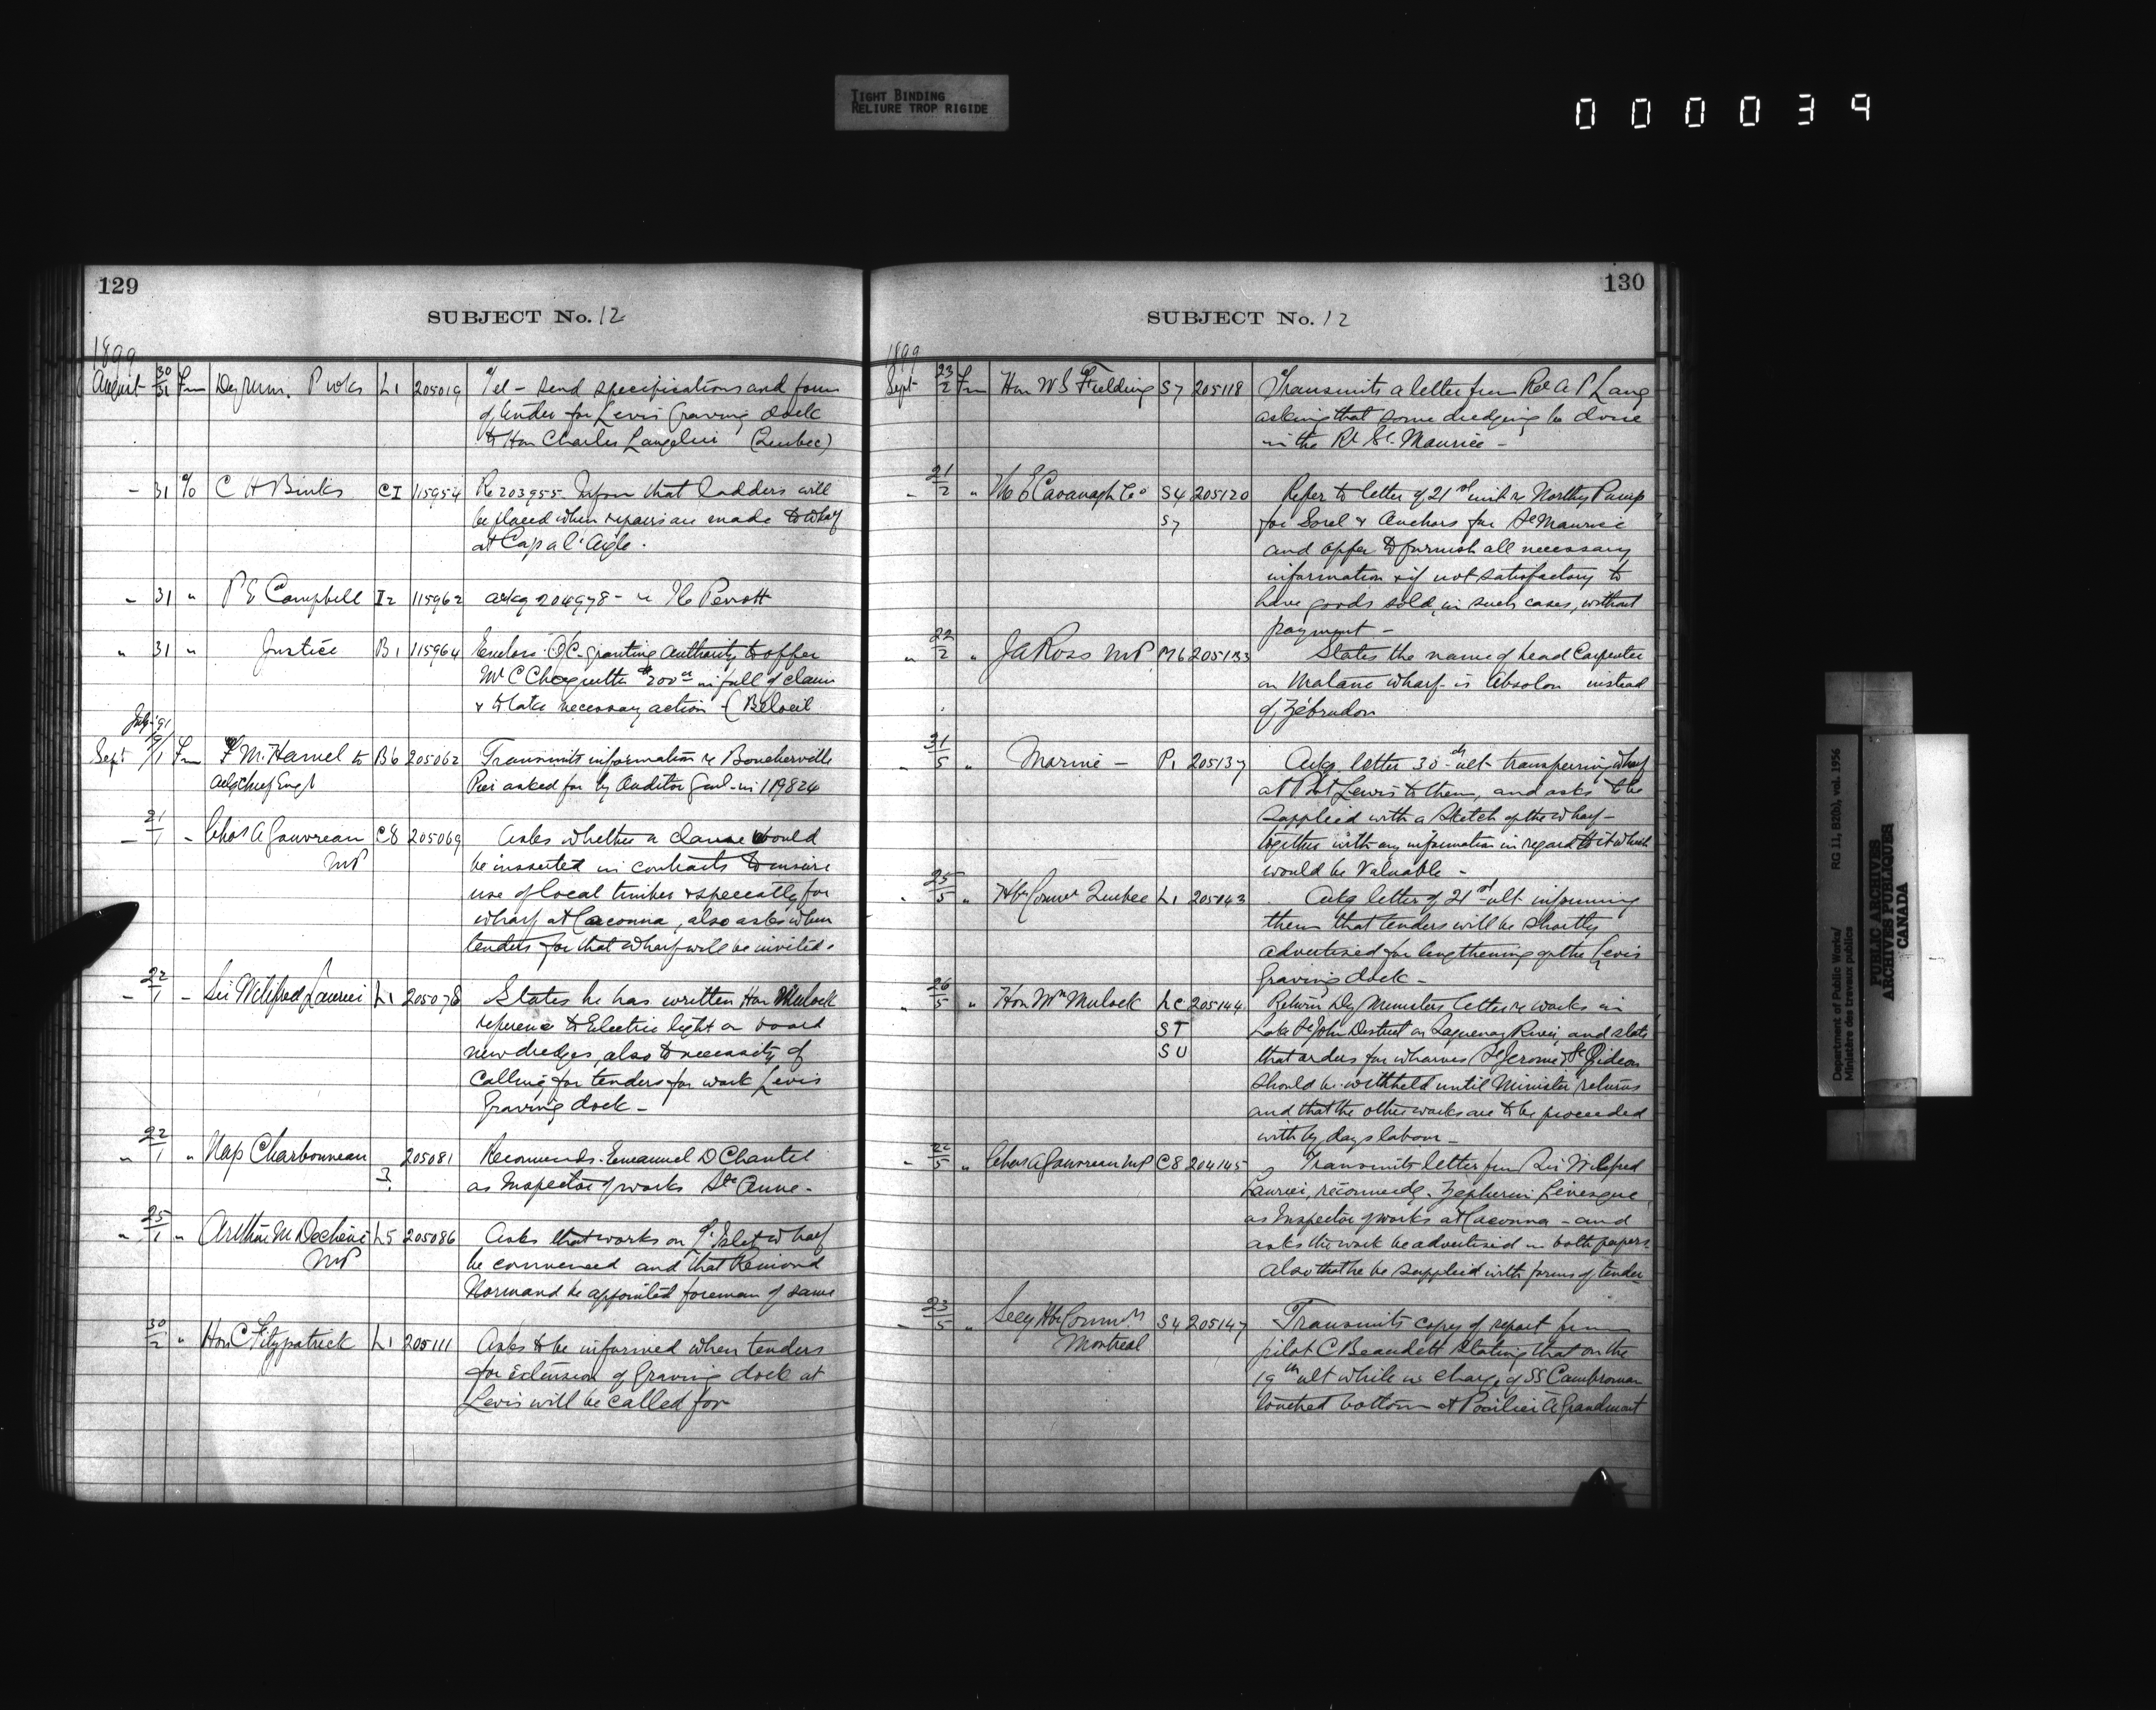 TIGHT BINDING
RELIURE TROP RIGIDE
000039
129
SUBJECT No. 12
1899
August 30/31 Fm Dy Min. P Wks L1 205019 Tel - Send specifications and form
of tender for Levis Graving dock
to Hon Charles Langelier (Quebec)
- 31 % C H Binks CI 115954 Re 203955 - Inform that ladders will
be placed when repairs are made to wharf
at Cap a l'Aigle.
- 31 " P E Campbell I2 115962 ackg 204978 - re Ile Perrott
" 31 " Justice B1 115964 Encloses OC. granting authority to offer
Mr C Choquette $200 in full of claim
& to take necessary action - (Beloeil
July
Sept /1 Fm M. Hamel to B6 205062 Transmits information re Boucherville
Actg Chief Engr Pier asked for by Auditor Genl - in 119824
- 21/1 - Chas A Gauvreau C8 205069 Asks whether a clause would
MP be inserted in contracts to insure
use of local timber & specially for
wharf at Cacouna, also asks when
tenders for that wharf will be invited.
- 22/1 - Sir Wilfred Laurier L1 205078 States he has written Hon Mulock
reference to Electric light on board
new dredges, also to necessity of
Calling for tenders for work Levis
Graving dock -
" 22/1 " Nap Charbonneau 205081 Recomends Emeanuel D Chantel
3. as Inspector of works Ste Anne -
" 25/1 " Arthur M Dechene L5 205086 Asks that works on L'Islet wharf
MP be commenced and that
Normand be appointed foreman of same
30/2 " Hon C Fitzpatrick L1 205111 Asks to be informed when tenders
for Extension of Graving dock at
Levis will be called for
130
SUBJECT No. 12
1899
Sept 23/2 Fm Hon W S Fielding S7 205118 Transmits a letter from Rev A P Lang
asking that some dredging be done
in the Rr St. Maurice -
- 21/2 " The E Cavanagh Co S4 205120 Refer to letter of 21st inst re Northey Pump
S7 for Sorel & Anchors for St Maurice
and offer to furnish all necessary
information & if not satisfactory to
have goods sold, in such cases, without
payment -
" 22/2 " J A Ross MP M6 205133 States the name of head Carpenter
on Matane wharf is Absolon instead
of Zébrudon
- 31/5 " Marine - P1 205137 Ackg letter 30th ult transferring wharf
at Port Lewis to them, and asks to be
supplied with a Sketch of the wharf -
together with any information in regard to it which
would be Valuable -
" 25/5 " Hbr Commr Quebec L1 205143 Ackg letter of 21st ult informing
them that tenders will be shortly
advertised for lengthening of the Levis
Graving dock -
" 26/5 " Hon Wm Mulock LC 205144 Return Dy Ministers letter re works in
ST Lake St John District on Saguenay River, and state
SU that orders for wharves (St Jerome & St Gideon
should be withheld until Minister returns
and that the other works are to be proceeded
with by days labour -
- 22/5 " Chas A Gauvreau MP C8 204145 Transmits letter from Sir Wilfred
Laurier, recomendg. Zepherin Levesque
as Inspector of works at Cacouna - and
asks the work be advertised in both papers
Also that he be supplied with forms of tender
- 23/5 " Secy Hbr Commrs S4 205147 Transmits copy of report from
Montreal pilot C Beaudett stating that on the
19th ult while in charge of SS Cambroman
touched bottom at Poulier à Grandmont
Department of Public Works/ RG 11, B2(b), vol. 1956
Ministère des travaux publics
PUBLIC ARCHIVES
ARCHIVES PUBLIQUES
CANADA